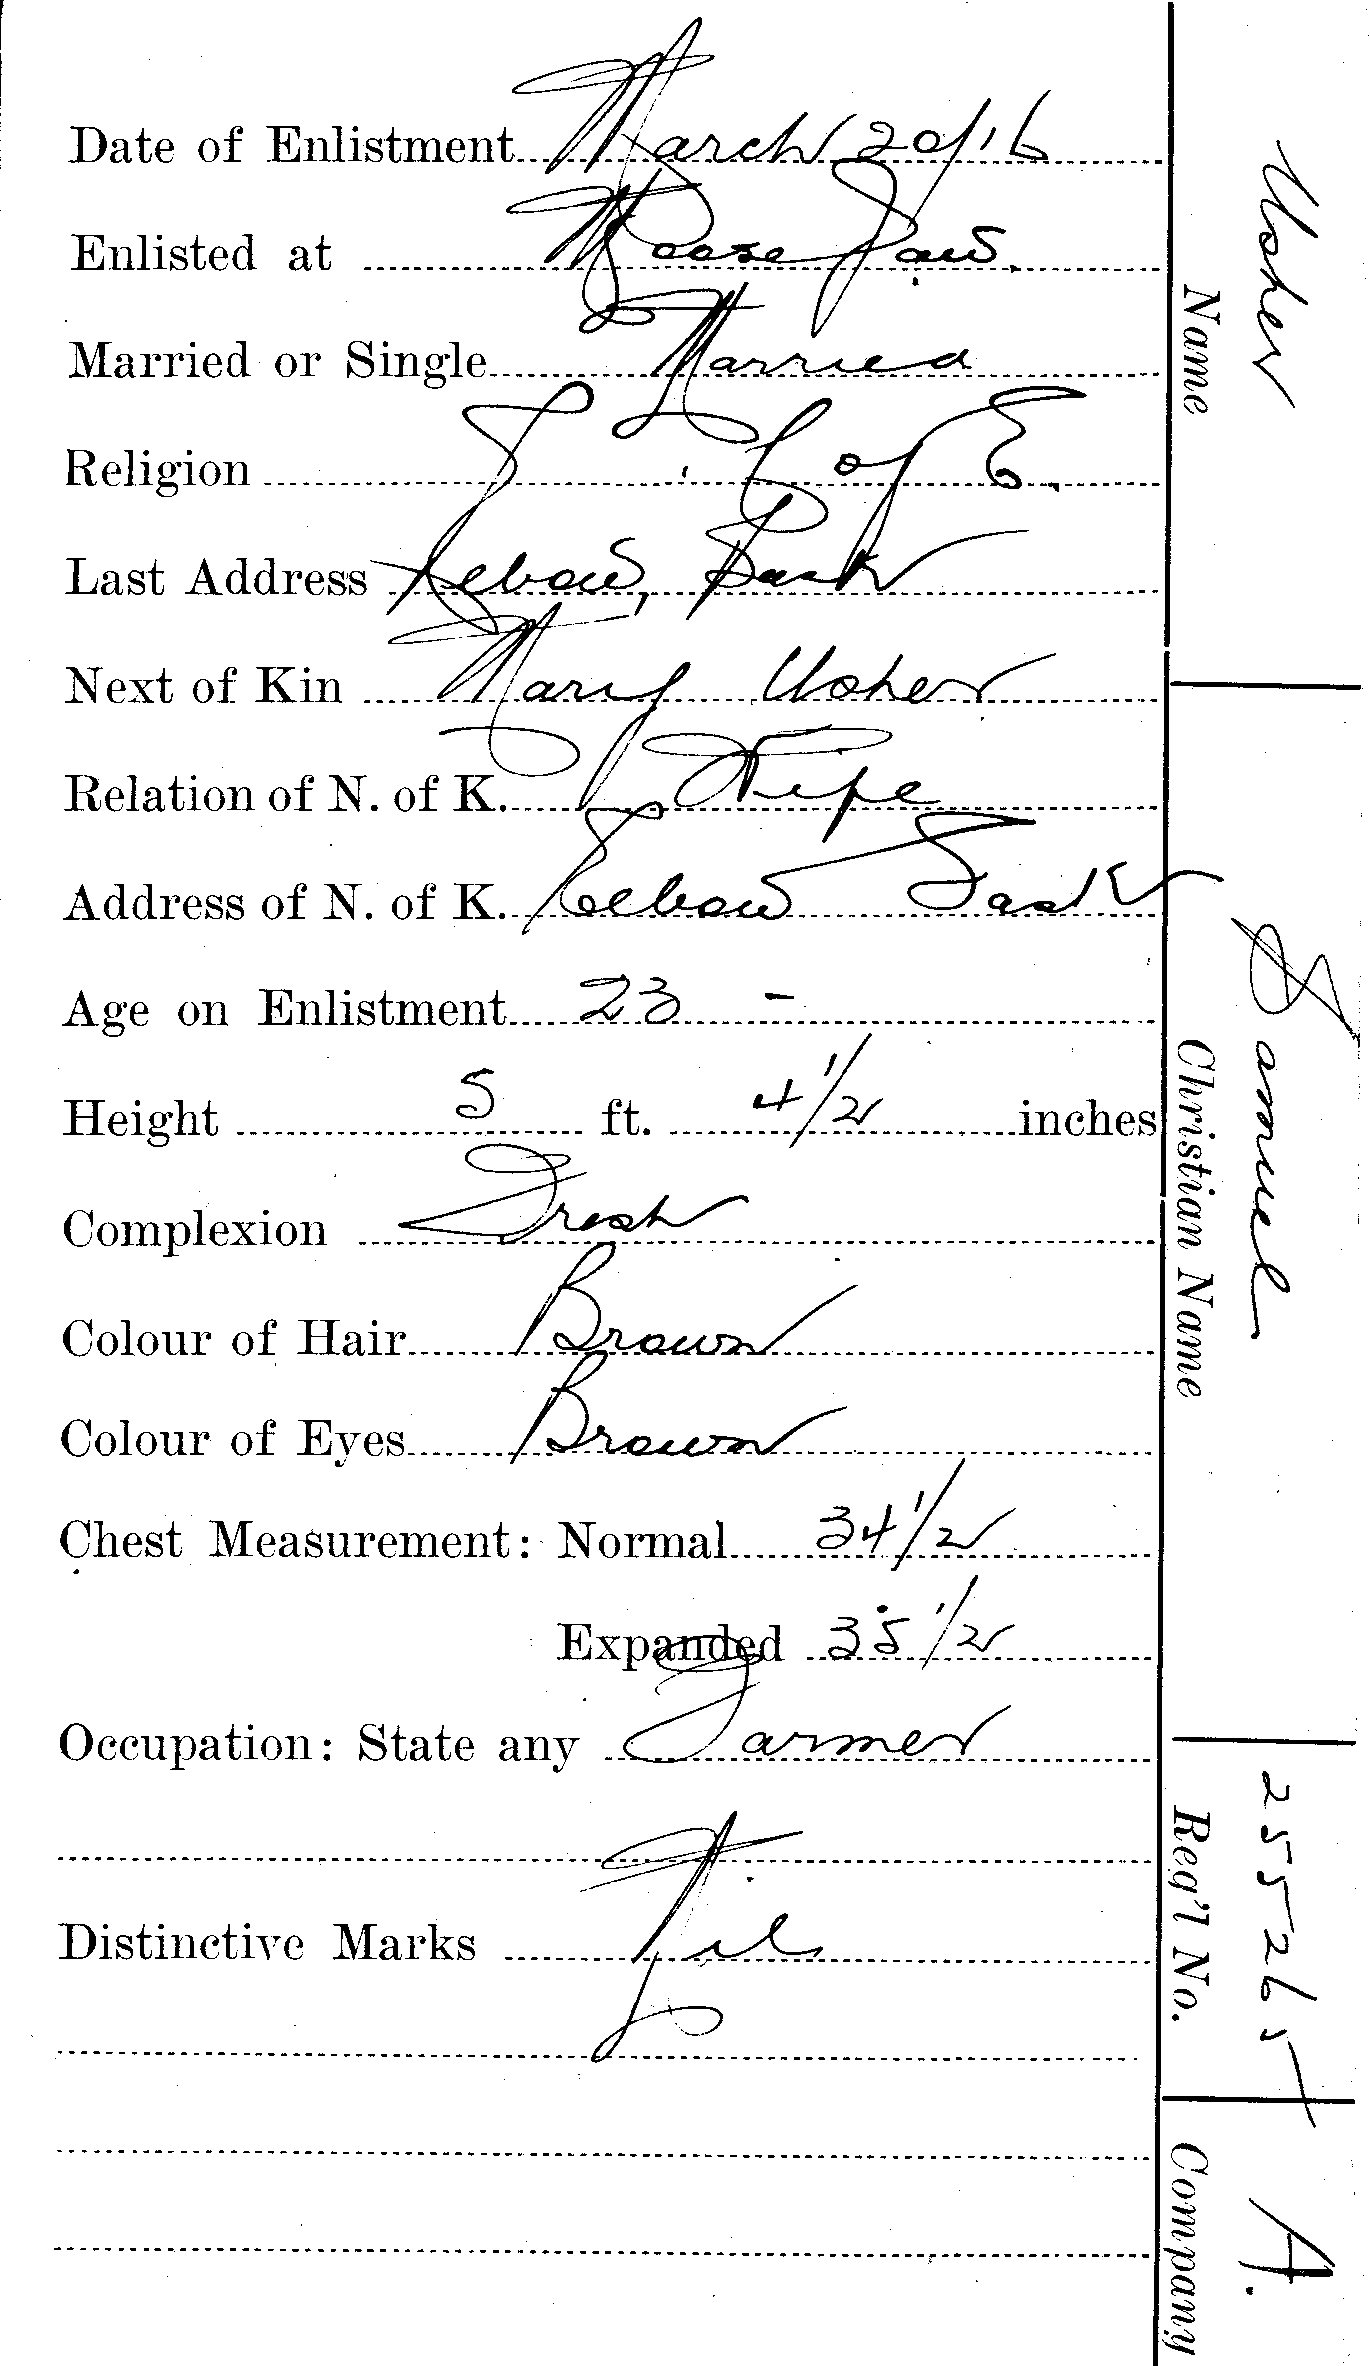 Date of Enlistment March 20/16
Enlisted at Moose Jaw.
Married or Single Married
Religion C of E.
Last Address Elbow, Sask
Next of Kin Mary Usher
Relation of N. of K. Wife
Address of N. of K. Elbow Sask
Age on Enlistment 23 -
Height 5 ft. 4 1/2 inches
Complexion Fresh
Colour of Hair Brown
Colour of Eyes Brown
Chest Measurement: Normal 34 1/2
Expanded 35 1/2
Occupation: State any Farmer
Distinctive Marks Nil
Usher
Name
Samuel
Christian Name
255265
Reg'l No.
A.
Company